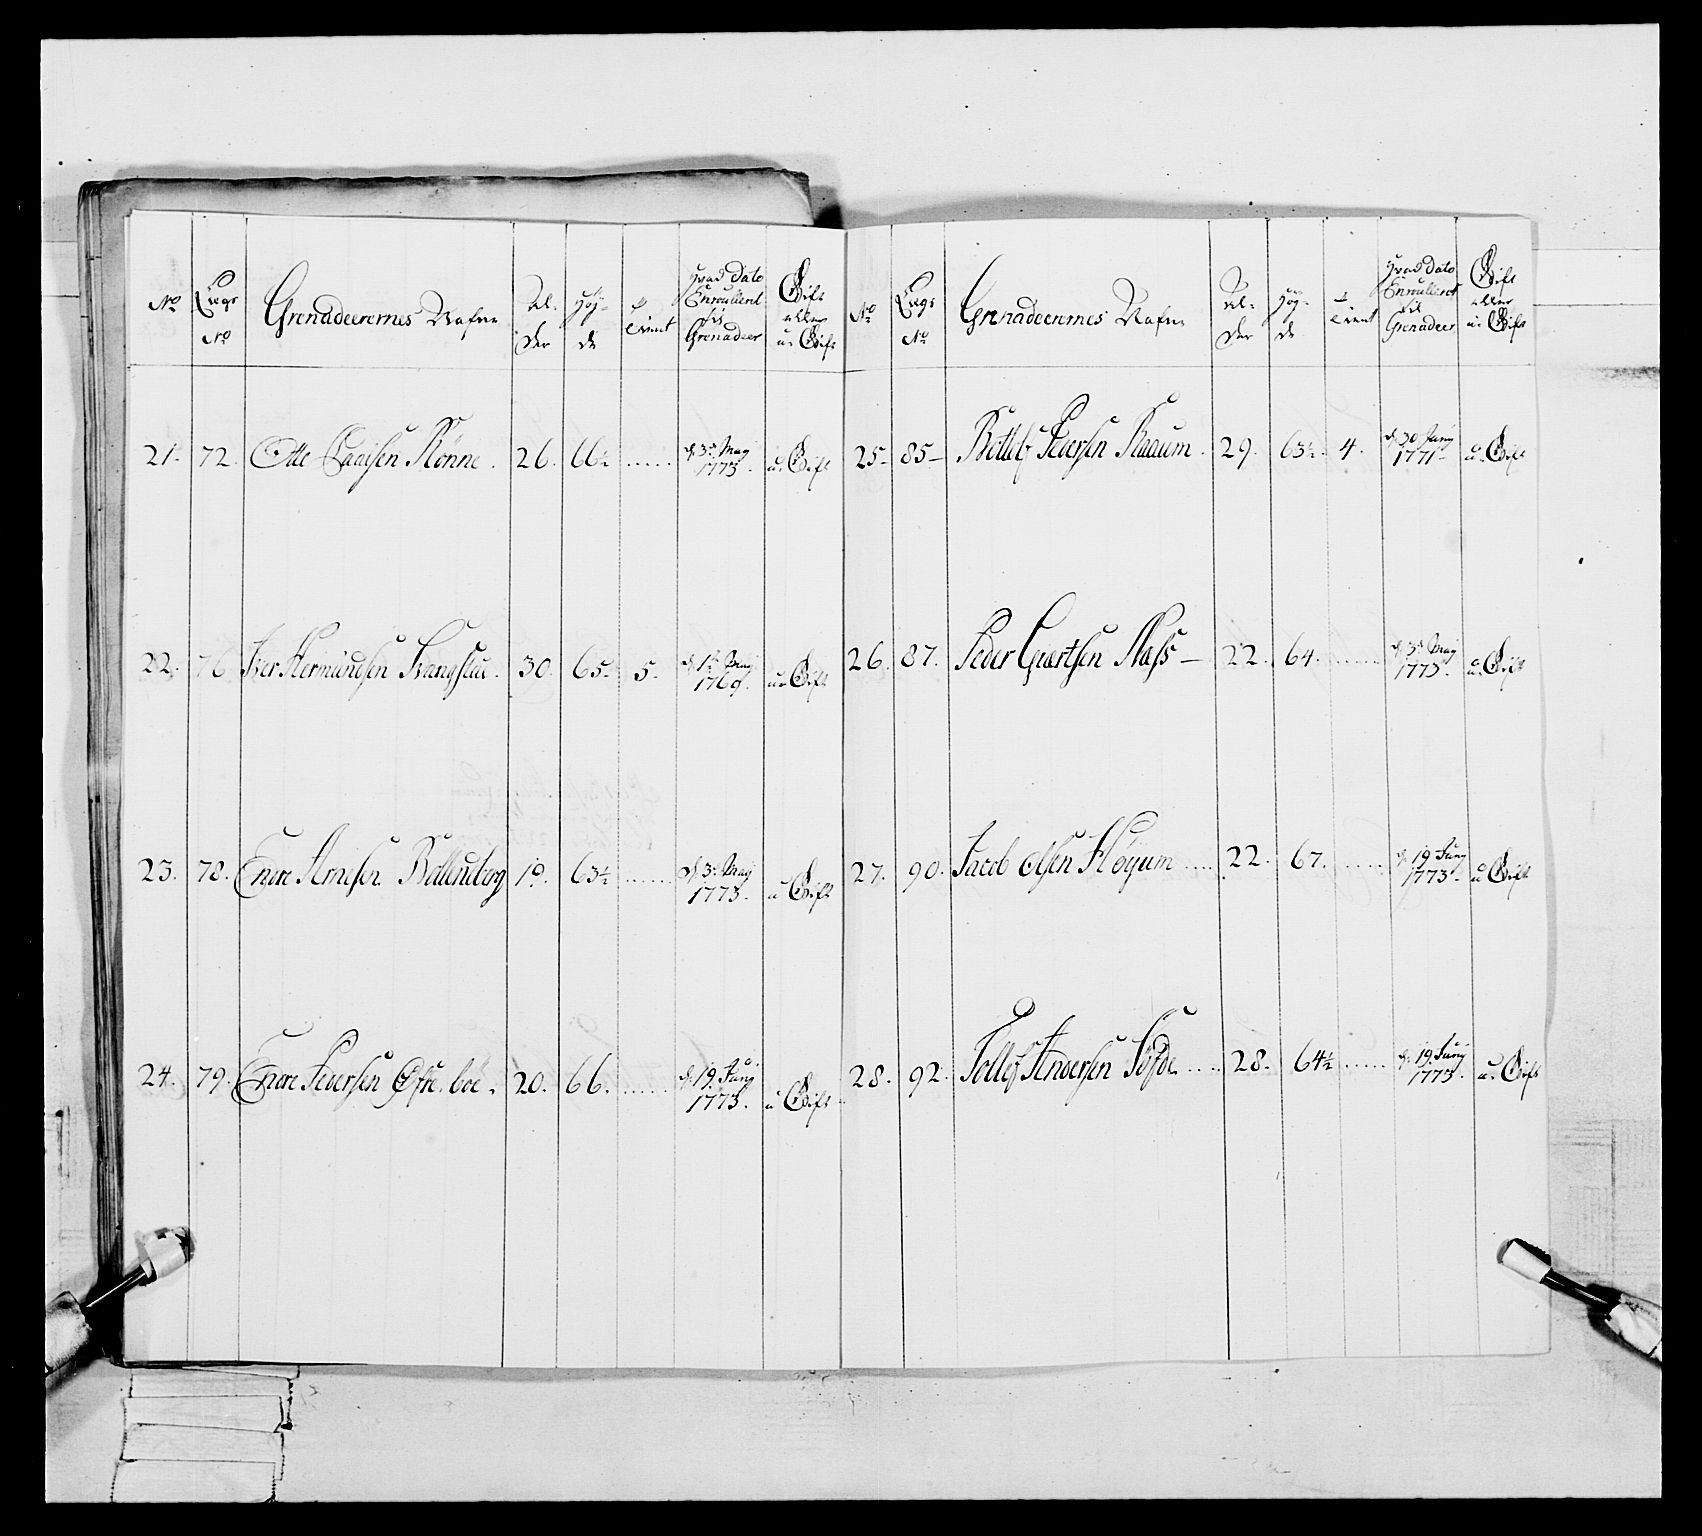 No Lægs No Grenadeerernes Nafne Al-der Høy-de Tient Hvad Dato Enroullert til Grenadeer Gift eller u: Gift
21. 72. Otte Larsen Rønne. 26. 66½ ...... d. 3de May 1773. u. Gift
22. 76 Iver Hermundsen 30. 65. 5. May 1769. u: Gift
23. 78. Endre Arnesen 19. 63½ ...... d. 3de May 1773. u Gift
24. 79. Endre Pedersen Øfre boe. 20. 66. ...... d. 19. Juny 1773. u Gift
No Lægs No Grenadeerernes Nafne Al-der Høy-de Tient Hvad Dato Enroullert til Grenadeer Gift eller u: Gift
25. 85 Pedersen 29. 63½ 4. d. 30 Juny 1771 u. Gift
26. 87. Peder Giertsen Næss 22. 64. ...... d. 3de May 1773. u. Gift
27. 90. Jacob Olsen Fløyum ..... 22. 67. ...... d. 19 Juny 1773. u Gift
28. 92. Tollef Andersen ..... 28. 64½ ...... d. 19. Juny 1773. u. Gift